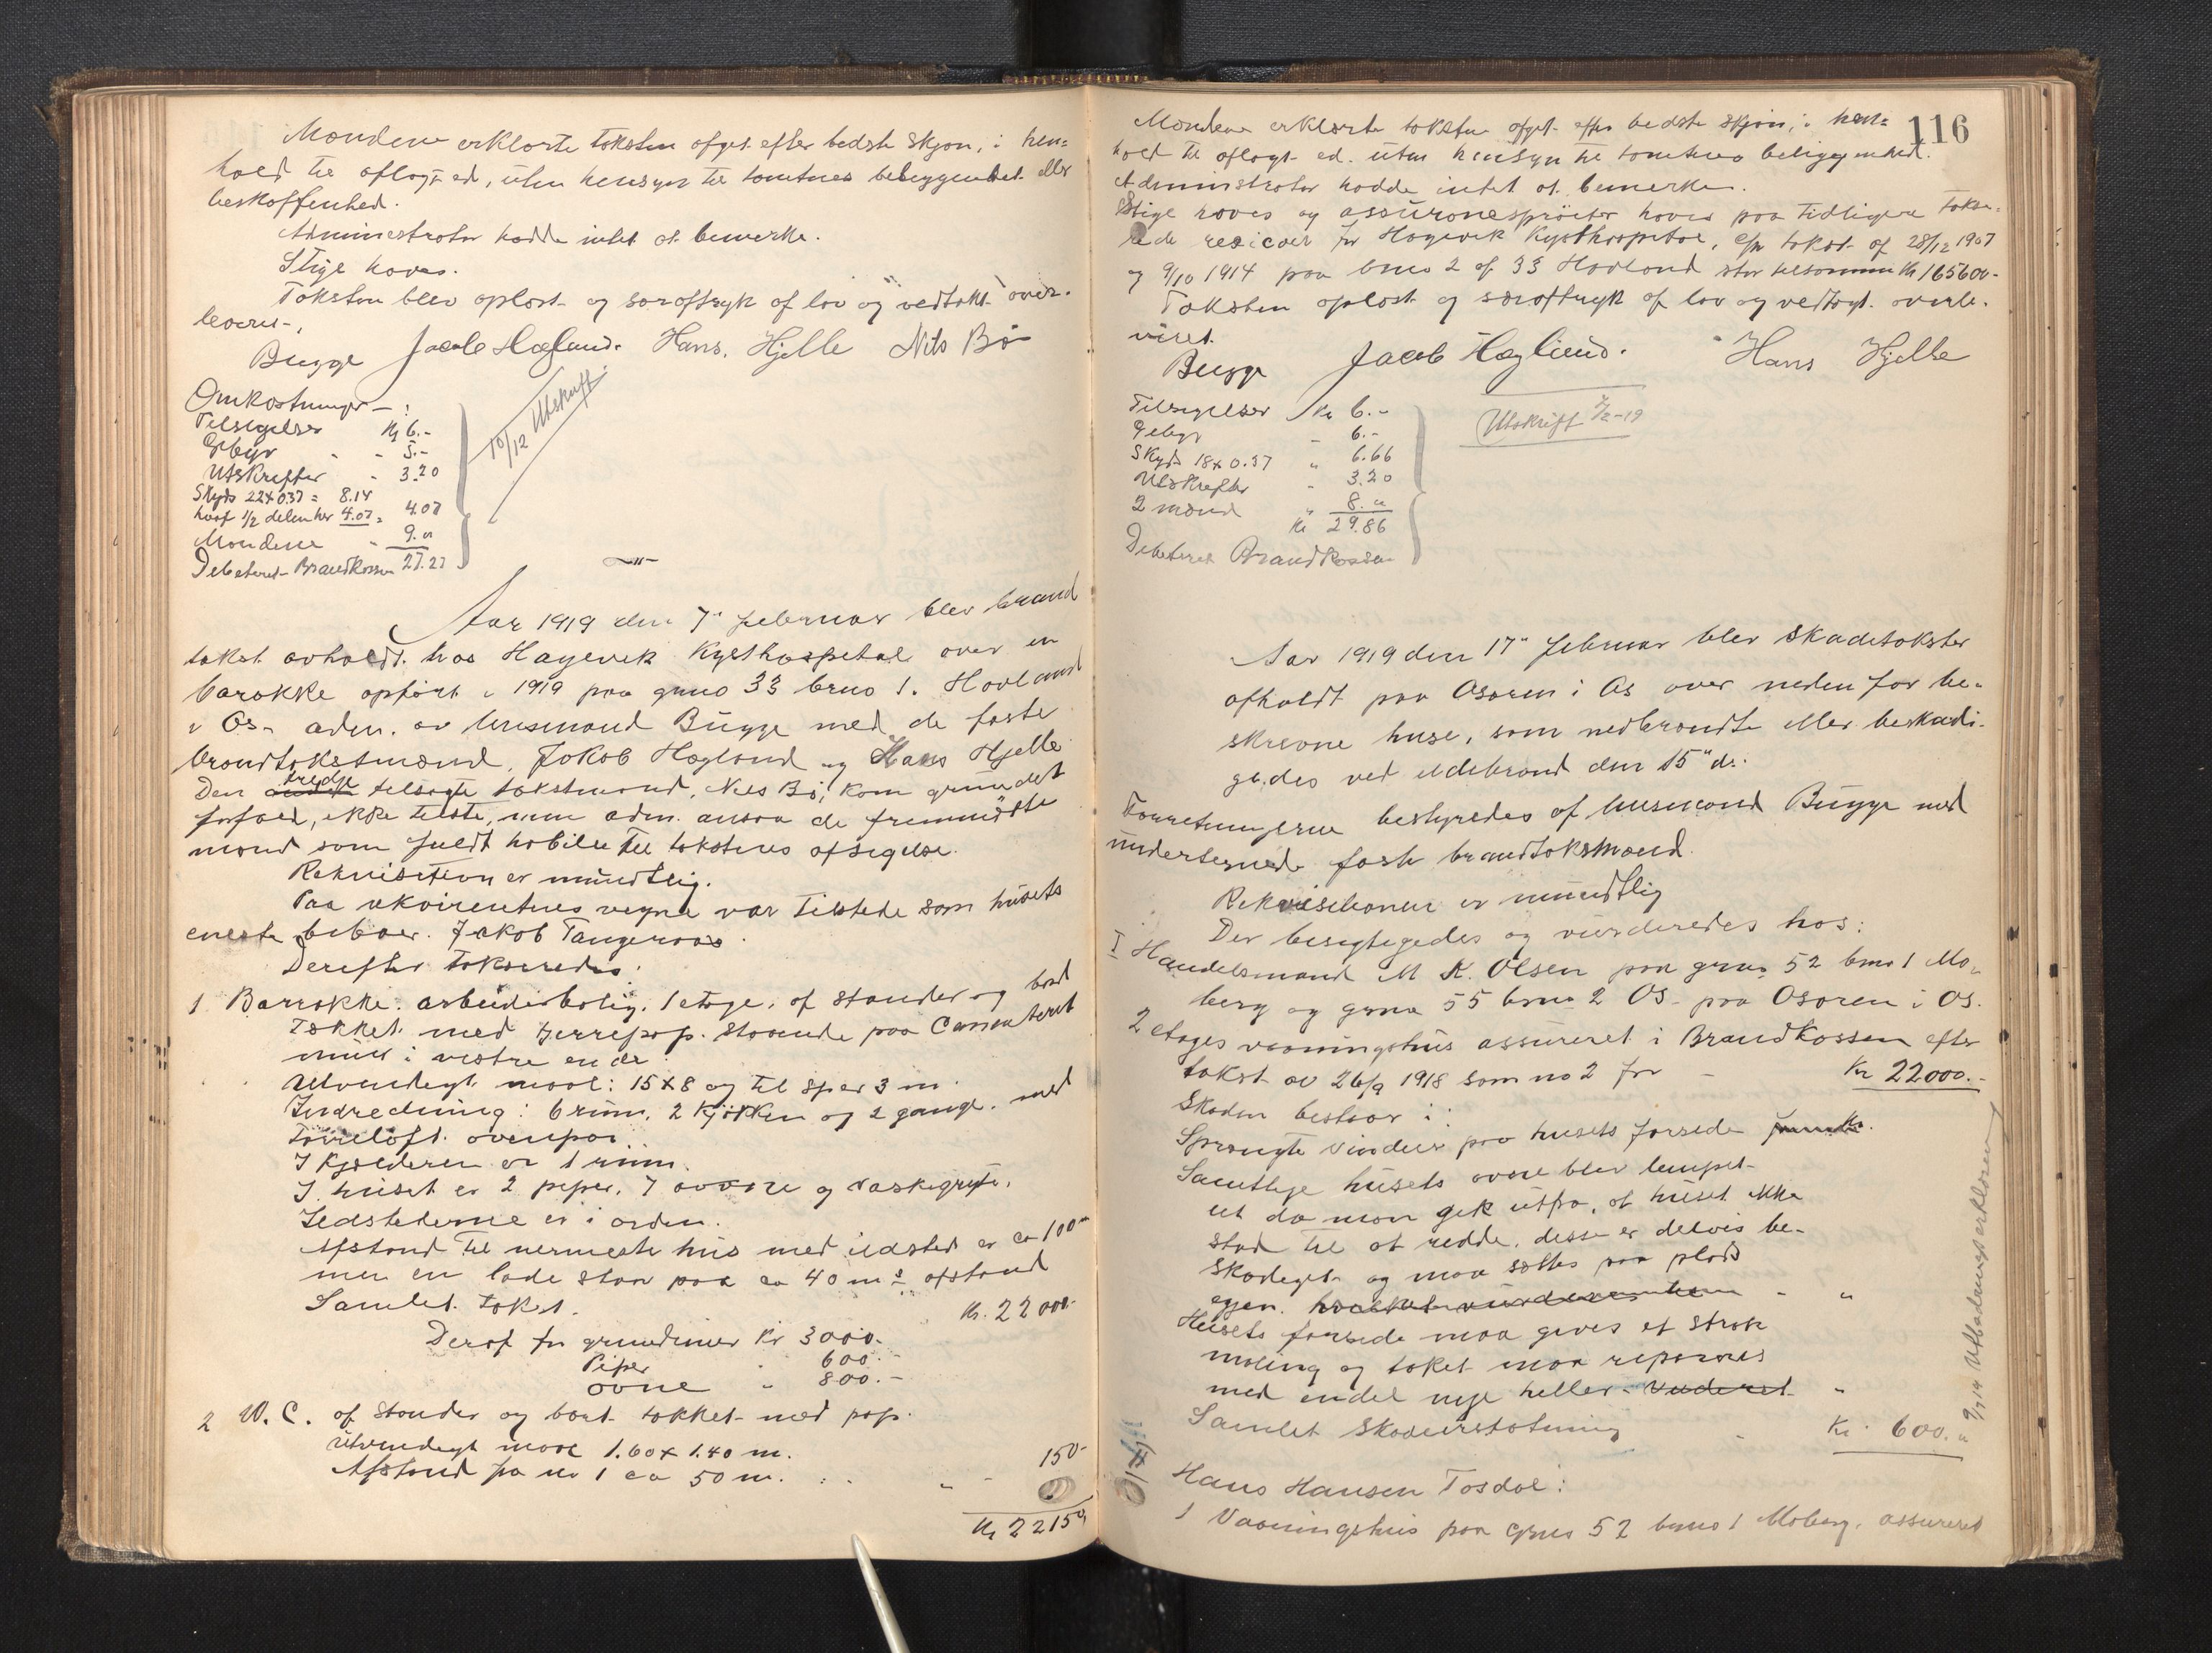 Mændene erklærte taksten afget efter bedste skjøn, i hen=
hold til aflagt ed, uten hensyn til tomtenes beliggenhet eller
beskaffenhed.
Administrator hadde intet at bemerke.
Stige haves.
Taksten blev oplæst og særaftryk af lov og vedtækt over-
leveret.
Bugge Jacob Hægland. Hans. Hjelle Nils Bø
Omkostninger:
Tilsigelser Kr 6.-
Gebyr - - 5.-
Utskrifter - 3.20
Skyds 22x0.37 = 8.14
hvoraf 1/2 delen her 4.07 = 4.07
Mændene - 9.00
Debeteret Brandkassen 27.27
10/12 Utskrift
Aar 1919 den 7de februar blev brand
takst avholdt hos Hagevik Kysthospital over en
barakke opført i 1919 paa grno 33 brno 1. Havland
i Os. adm. av lensmand Bugge med de faste
brandtakstmænd, Jakob Hægland og Hans Hjelle
Den tredje tilsagte takstmand, Nils Bø, kom grundet
forfald, ikke tilste, men adm. ansaa de fremmødte
mænd som fuldt habile til takstens afsigelse.
Rekvisition er mundtlig.
Paa rekvirentens vegne var tilstede som husets
eneste beboer. Jakob Tangeraas.
Derefter takseredes:
1 Barrakke: arbeiderbolig, 1 etage, af stander og bord
tækket med tjærepap. staaende paa Cementeret
mur i vestre ende.
Utvendigt maal: 15x8 og til spær 3 m.
Indredning: 6 rum, 2 kjøkken og 2 gange. med
tørreloft ovenpaa.
I kjælderen er 1 rum.
I huset er 2 piper, 7 ovne og vaskegryte.
Ildstederne er i orden.
Afstand til nærmeste hus med ildsted er ca 100 m
men en lade staar paa ca 40 m s afstand
Samlet takst. Kr. 22000-
Deraf for grundmur Kr 3000.-
Piper - 600.-
ovne - 800.-
2 W. C. af stander og bord tækket med pap.
utvendigt maal 1.60 x 1.40 m.
Afstand fra no 1 ca 50 m. 150-
Kr 22150
116
Mændene erklærte taksten afget efter bedste skjøn, i hen=
hold til aflagt ed. uten hensyn til tomtenes beliggenhed.
Administrator hadde intet at bemerke.
Stige haves og assuransesprøiter haves paa tidligere takse-
rede for Hagevik Kysthospital, efr takst af 28/12 1907
og 9/10 1914 paa brno 2 af 33 Havland stor tilsammen Kr 165600-
Taksten oplæst og særaftryk af lov og vedtægt overle-
veret.
Bugge Jacob Hægland. Hans Hjelle
Tilsigelser Kr 6.-
Gebyr - 6.-
Skyds 18x0.37 " 6.66
Utskrifter - 3.20
2 mænd " 8.00
Kr 29.86
Debeteret Brandkassen
Utskrift 7/2-19
Aar 1919 den 17de februar blev skadetakster
afholdt paa Osøren i Os over neden for be-
skrevne huse, som nedbrændte eller beskadi-
gedes ved ildebrand den 15de ds.
Forretningerne bestyredes af lensmand Bugge med
undertegnede faste brandtakstmænd.
Rekvisitionen er mundtlig
Der besigtigedes og vurderedes hos:
I Handelsmand M K. Olsen paa grno 52 brno 1 Mo-
berg og grno 55 brno 2 Os. paa Osøren i Os.
2 etages vaaningshus assureret i Brandkassen efter
takst av 26/9 1918 som no 2 for - Kr 22000.-
Skaden bestaar i:
Sprængte vinduer paa husets forside
Samtlige husets ovne blev lempet
ut da man gik utfra, at huset ikke
stod til at redde, disse er delvis be-
skadiget og maa sættes paa plads
igjen. hvilket vurderes - "
Husets forside maa gives et strøk
maling og taket maa repareres
med endel nye heller. Vurderet "
Samlet Skadeerstatning - Kr 600. "
Hans Hansen Tøsdal:
1 Vaaningshus paa grno 52 brno 1 Moberg, assureret